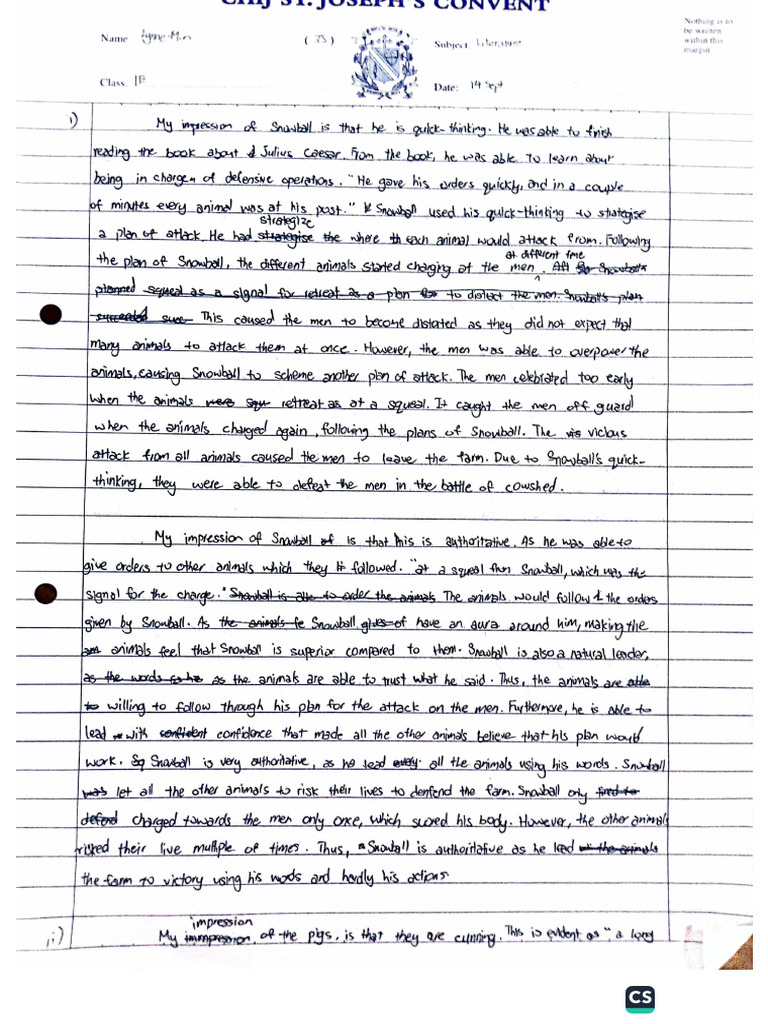 CHIJ ST. JOSEPH'S CONVENT
Name Lynne-Min ( 33 ) Subject Literature
Class. 1F Date: 14 Sept
Nothing is to
be written
within this
margin
i) My impression of Snowball is that he is quick-thinking. He was able to finish
reading the book about Julius Caesar. From the book, he was able to learn about
being in charge of defensive operations. "He gave his orders quickly, and in a couple
of minutes every animal was at his post." Snowball used his quick-thinking to strategise
strategize
a plan of attack. He had strategise the where each animal would attack from. Following
at different time
the plan of Snowball, the different animals started charging at the men. Snowball's
planned squeal as a signal for retreat as a plan to distract the men. Snowball's plan
succeeded sure This caused the men to become distated as they did not expect that
many animals to attack them at once. However, the men was able to overpower the
animals, causing Snowball to scheme another plan of attack. The men celebrated too early
when the animals were squ retreat as at a squeal. It caught the men off guard
when the animals charged again, following the plans of Snowball. The vis vicious
attack from all animals caused the men to leave the farm. Due to Snowball's quick-
thinking, they were able to defeat the men in the battle of cowshed.
My impression of Snowball of is that his is authoritative. As he was able to
give orders to other animals which they followed. "at a squeal from Snowball, which was the
signal for the charge." Snowball is able to order the animals The animals would follow the orders
given by Snowball. As the animals fe Snowball gives of have an aura around him, making the
am animals feel that Snowball is superior compared to them. Snowball is also a natural leader,
as the words as the animals are able to trust what he said. Thus, the animals are able
to willing to follow through his plan for the attack on the men. Furthmore, he is able to
lead with confident confidence that made all the other animals believe that his plan would
work. Snowball is very authoritative, as he lead every all the animals using his words. Snowball
was let all the other animals to risk their lives to denfend the farm. Snowball only tried to
defend charged towards the men only once, which scored his body. However, the other animals
risked their live multiple of times. Thus, Snowball is authoritative as he lead the animals
the farm to victory using his words and hardly his actions.
impression
ii) My immpression of the pigs, is that they are cunning. This is evident as "a long
CS